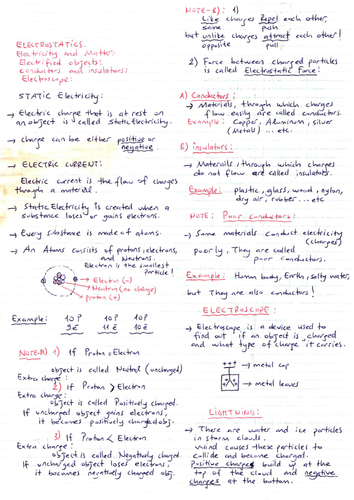 ELECTROSTATICS.
Electricity and Matter:
Electrified objects:
conductors and insulators:
Electroscope:
STATIC Electricity:
→ Electric charge that is at rest on
an object is called Static Electricity.
→ charge can be either positive or
negative
→ ELECTRIC CURRENT:
Electric current is the flow of charges
through a material.
→ Static Electricity is created when a
substance loses or gains electrons.
→ Every substance is made of atoms.
→ An Atoms consists of protons, electrons,
and Neutrons.
Electron is the smallest
Particle!
→ Electron (-)
→ Neutron (no charge)
→ proton (+)
Example: 10 P 10 P 10 P
9 E 11 E 10 E
NOTE-A) 1) If Proton = Electron
object is called Neutral (uncharged)
Extra charge:
2) If Proton > Electron
Extra charge:
object is called Positively charged.
If uncharged object gains electrons,
it becomes positively charged obj.
3) If Proton < Electron
Extra charge:
object is called Negatively charged
If uncharged object loses electrons,
it becomes negatively charged obj.
NOTE-B): 1)
Like charges Repel each other,
same push
but unlike charges attract each other!
opposite pull
2) Force between charged particles
is called Electrostatic Force!
A) Conductors:
→ Materials, through which charges
flow easily are called conductors.
Example: Copper, Aluminum, silver
(Metals) ... etc
B) insulators:
→ Materials through which charges
do not flow are called insulators.
Example: plastic, glass, wood, nylon,
dry air, rubber ... etc
NOTE: Poor conductors:
→ Some materials conduct electricity
(charges)
poorly, They are called
poor conductors.
Example: Human body, Earth, salty water,
but They are also conductors!
ELECTROSCOPE:
→ Electroscope is a device used to
find out if an object is charged
and what type of charge it carries.
+++ → metal cap
→ metal leaves
LIGHTNING:
→ There are water and ice particles
in storm clouds.
Wind causes these particles to
collide and become charged.
Positive charges build up at the
top of the cloud and negative
charges at the bottom.